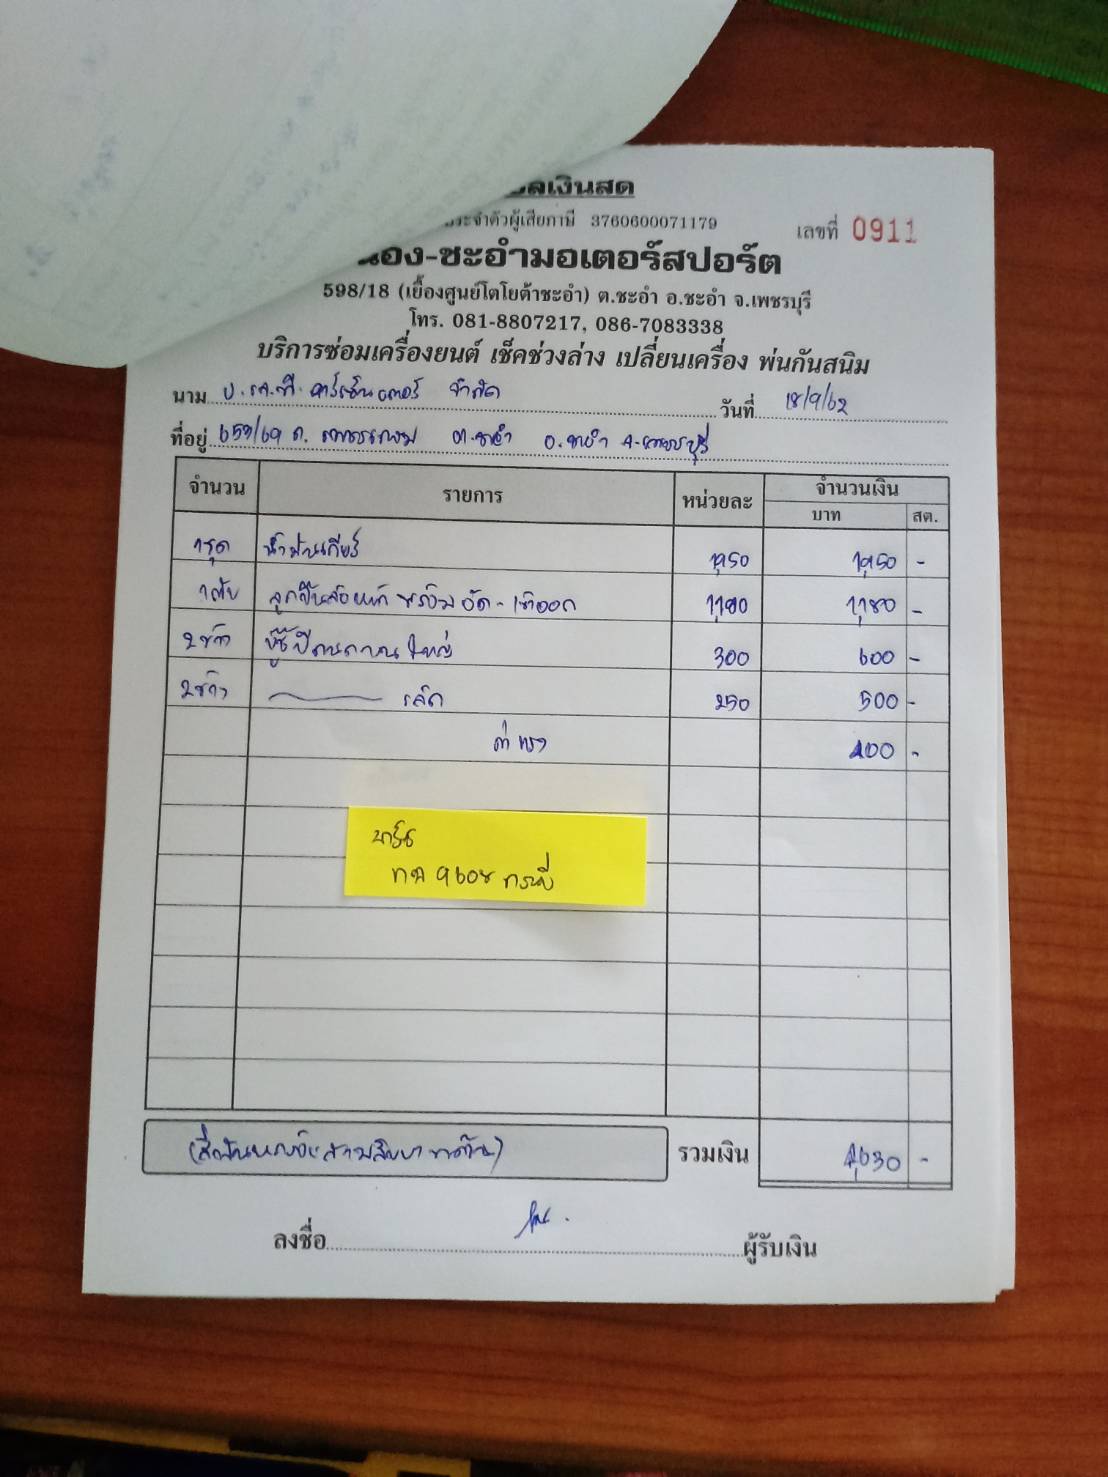 บิลเงินสด
ประจำตัวผู้เสียภาษี 3760600071179
เลขที่ 0911
น้อง-ชะอำมอเตอร์สปอร์ต
598/18 (เยื้องศูนย์โตโยต้าชะอำ) ต.ชะอำ อ.ชะอำ จ.เพชรบุรี
โทร. 081-8807217, 086-7083338
บริการซ่อมเครื่องยนต์ เช็คช่วงล่าง เปลี่ยนเครื่อง พ่นกันสนิม
นาม จำกัด วันที่ 18/9/62
ที่อยู่ 659/69 ถ. ต.ชะอำ อ.ชะอำ จ.เพชรบุรี
จำนวน รายการ หน่วยละ จำนวนเงิน
บาท สต.
1ชุด น้ำมันเกียร์ 1,950 1,950 -
1ตับ ลูกปืนล้อหน้า พร้อม อัด-เข้าออก 1,180 1,180 -
2ข้าง บู๊ชปีกนก ใหญ่ 300 600 -
2ข้าง เล็ก 250 500 -
ค่าแรง 400 -
9608
(สี่พันหกร้อยสามสิบบาทถ้วน) รวมเงิน 4,630 -
ลงชื่อ ผู้รับเงิน